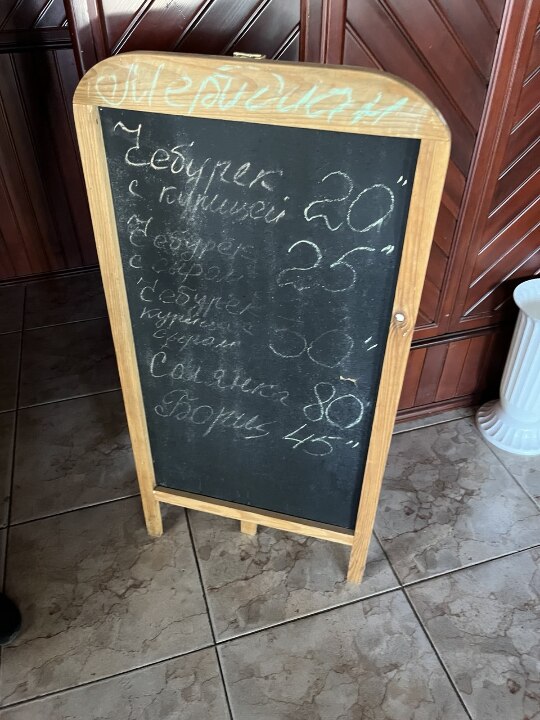 Чебурек
с курицей 20"
Чебурек
с сыром 25"
Чебурек
курица
сыром
Солянка 80"
Борщ 45"